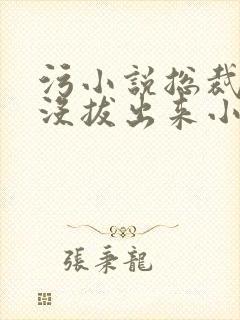 污小说总裁
没拔出来小
張秉龍